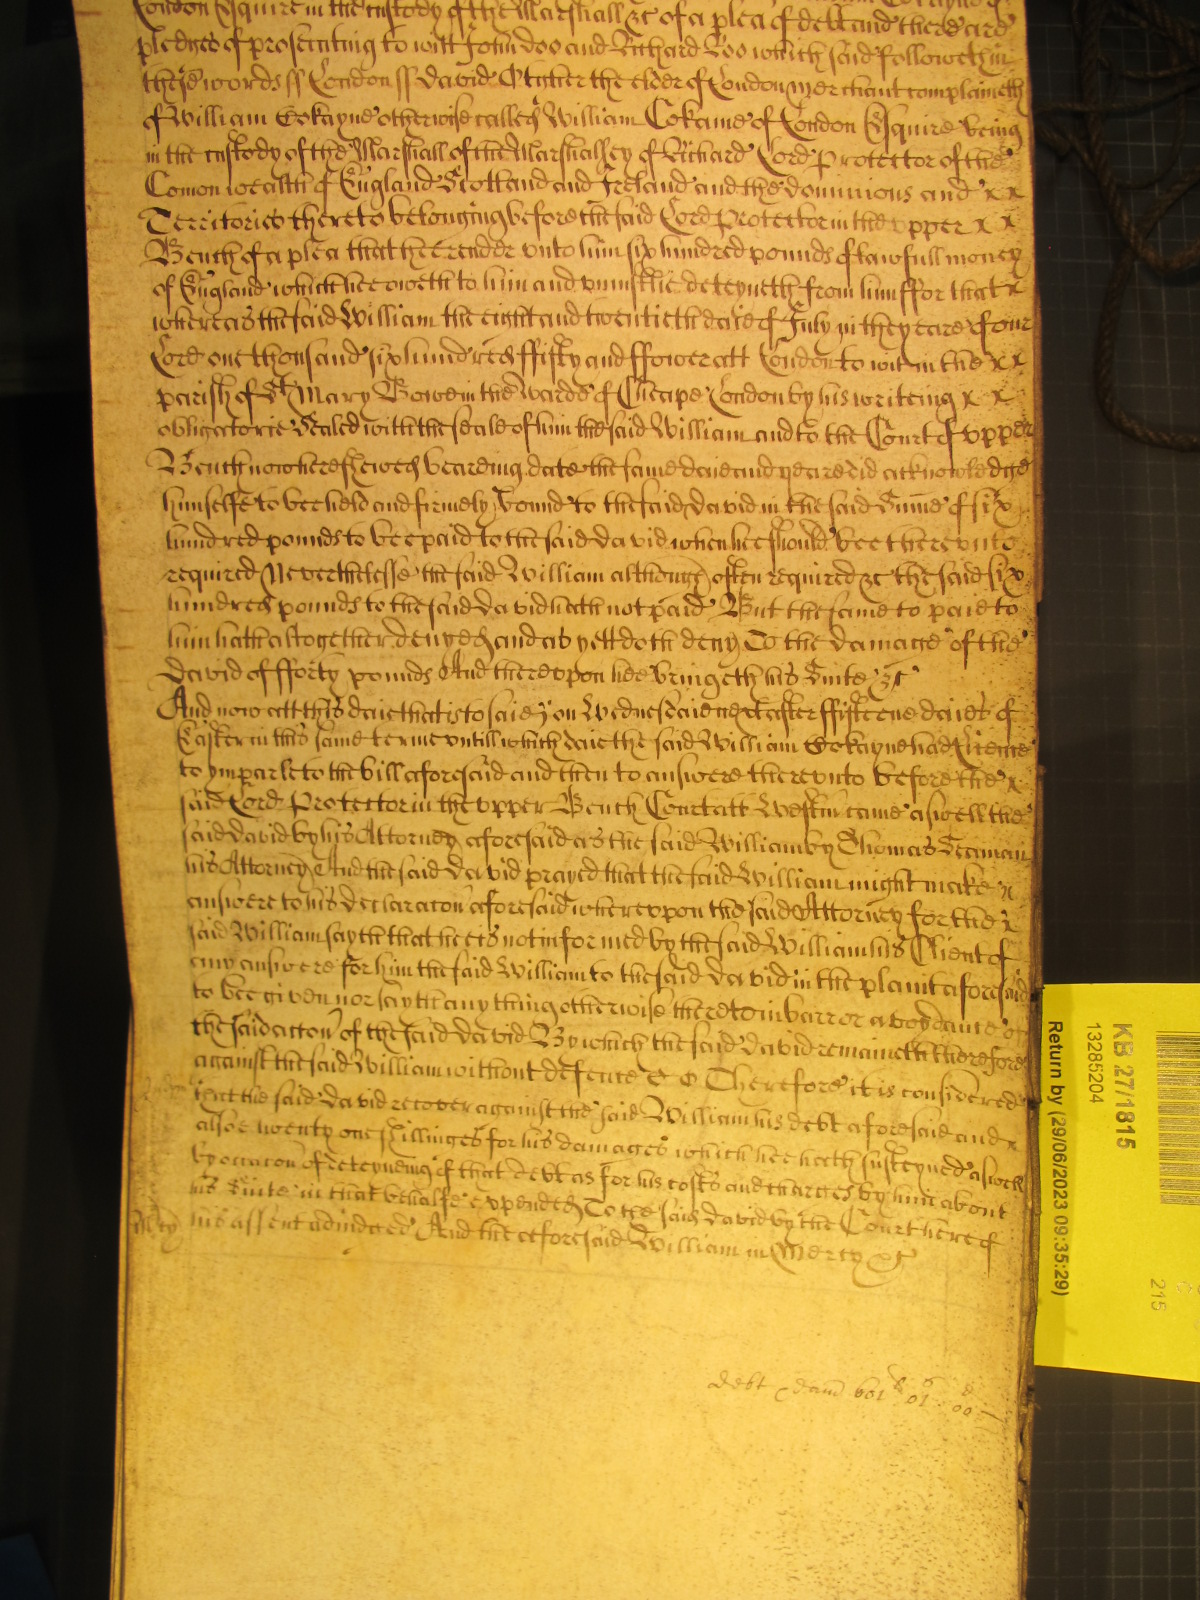 London Esquire in the custody of the Marshall &c of a plea of debt and there are
pledges of prosecuting to witt John Doo and Richard Roo which said followeth in
these words ss London ss David Otgher the elder of London Merchant complaineth
of William Cokayne otherwise called William Cokaine of London Esquire being
in the custody of the Marshall of the Marshalsey of Richard Lord Protector of the
Comon wealth of England Scotland and Ireland and the dominions and x x
Territories thereto belonging before the said Lord Protector in the upper x x
Bench of a plea that hee render unto him six hundred pounds of lawfull money
of England which hee oweth to him and uniustlie deteyneth from him ffor that x
whereas the said William the eight and twentieth daie of July in the yeare of our
Lord one thousand six hundred ffifty and ffower att London to wit in the x x
parish of St Mary Bowe in the warde of Cheape London by his writeing x x
obligatorie Sealed with the seale of him the said William and to the Court of upper
Bench now here shewed beareing date the same daie and yeare did acknowledge
himselfe to bee held and firmely bound to the said David in the said Summe of six
hundred pounds to bee paid to the said David when hee should bee thereunto
required Neverthelesse the said William although often required &c the said six
hundred pounds to the said David hath not paid But the same to paie to
him hath altogether denyed and as yett doth deny To the damage of the
David of fforty pounds And thereupon hee bringeth his Suite &c
And now att this daie that is to saie on Wednesdaie next after ffifteene daies of
Easter in this same terme untill which daie the said William Cokayne had License
to imparle to the bill aforesaid and then to answere thereunto before the x
said Lord Protector in the upper Bench Court att Westm came aswell the
said David by his Attorney aforesaid as the said William by Thomas Seaman
his Attorney And the said David prayed that the said William might make x
answere to his declaracon aforesaid whereupon the said Attorney for the x
said William sayth that hee is not informed by the said William his Client of
any answere for him the said William to the said David in the plaint aforesaid
to bee given nor sayth any thing otherwise thereto in barr or avoydance of
the said accon of the said David By which the said David remaineth therefore
against the said William without defence &c Therefore it is considered
that the said David recover against the said William his debt aforesaid and x
alsoe twenty one shillinges for his damages which hee hath susteyned aswell
by occacon of deteyneing of that debt as for his costs and charges by him about
his Suite in that behalfe expended To the said David by the Court here of
his assent adiudged And the aforesaid William in Mercy &c
Mcy
debt & dam 601 l 01 s 00 d
KB 27/1815
13285204
Return by (29/06/2023 09:35:29)
215